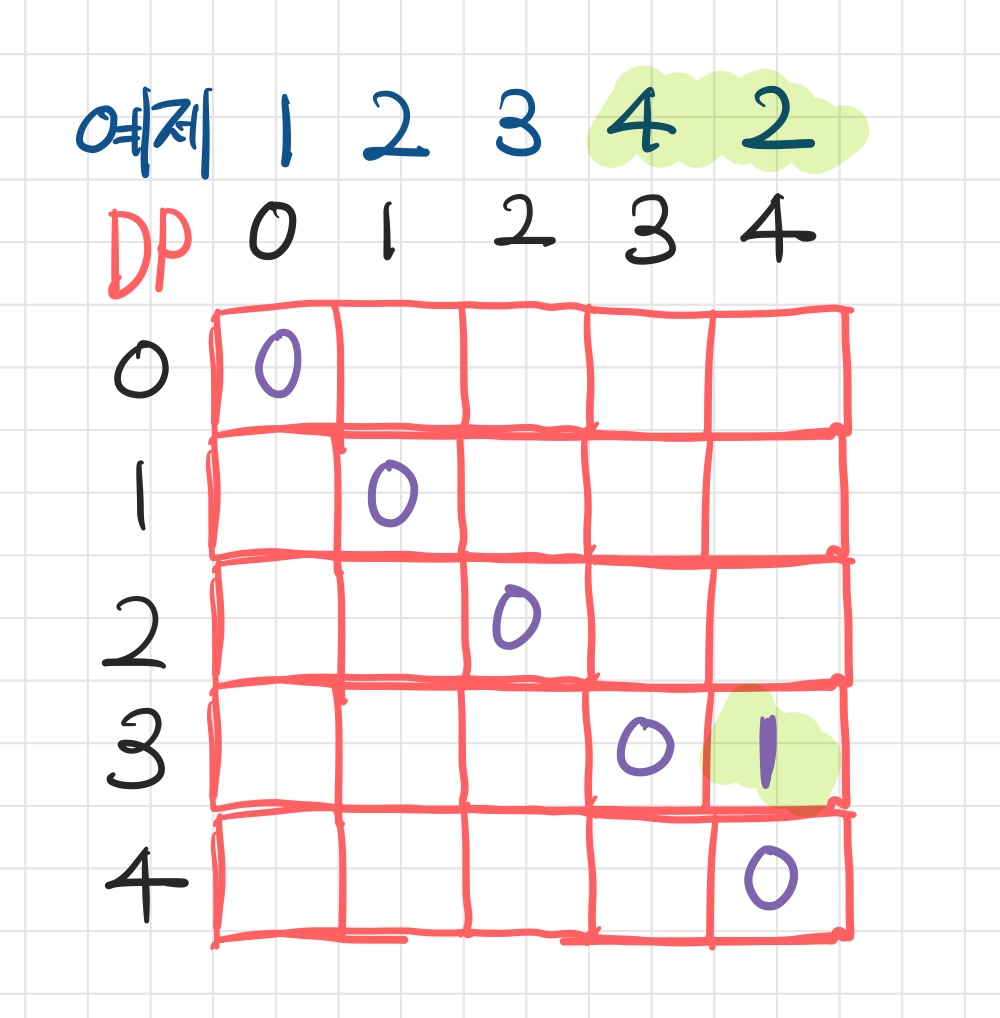 예제 1 2 3 4 2
DP 0 1 2 3 4
0 0
1 0
2 0
3 0 1
4 0